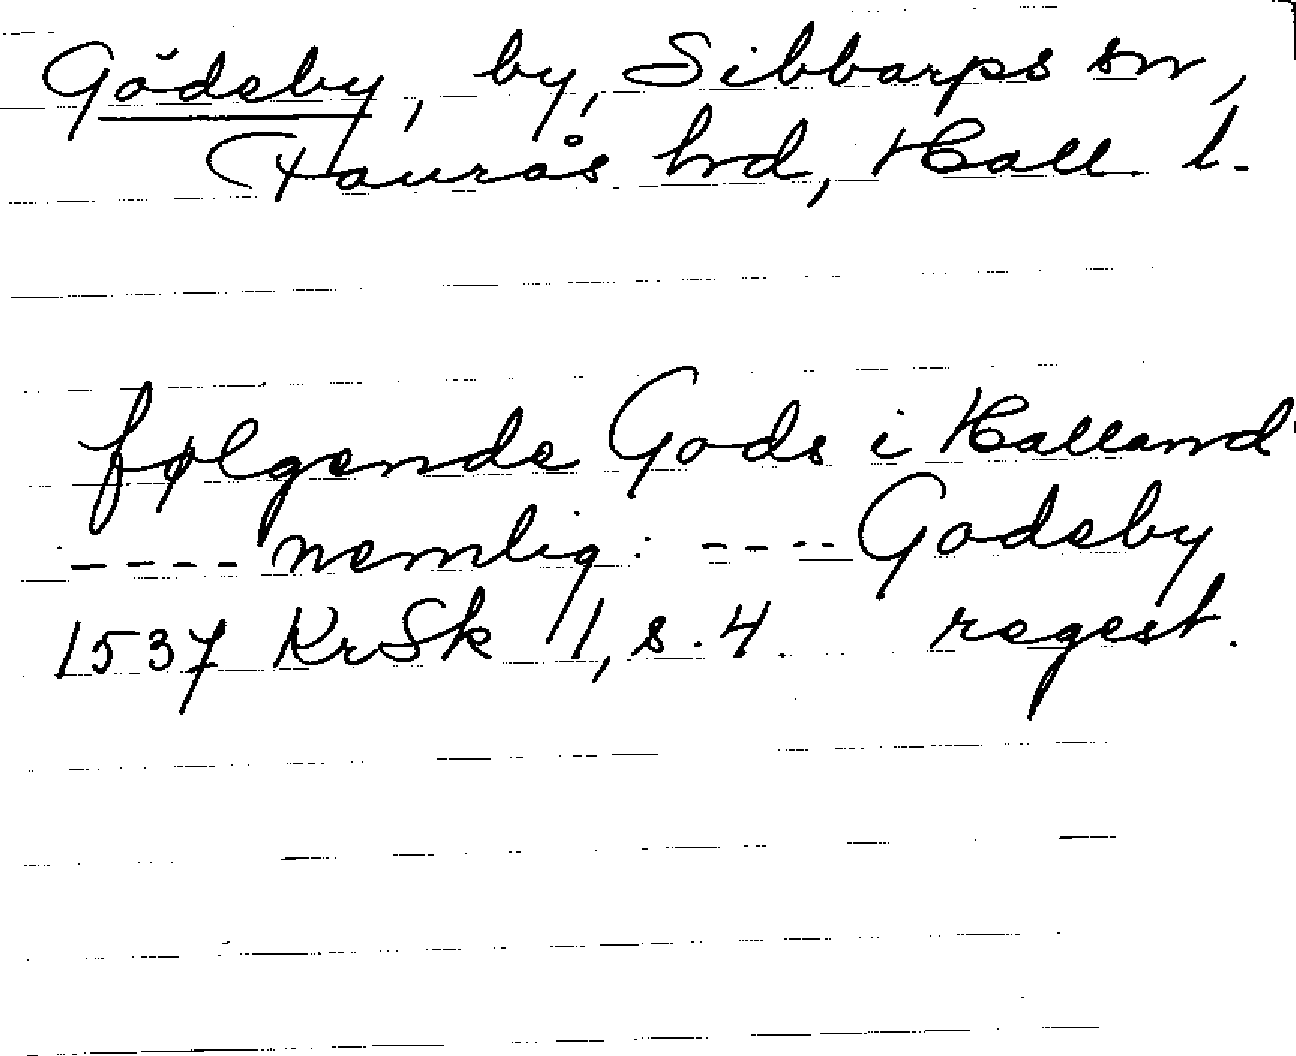 Gödeby, by, Sibbarps sn,
Faurås hrd, Hall. l.
følgende Gods i Halland
---- nemlig: ---- Godeby
1537 KrSk 1, s. 4. regest.